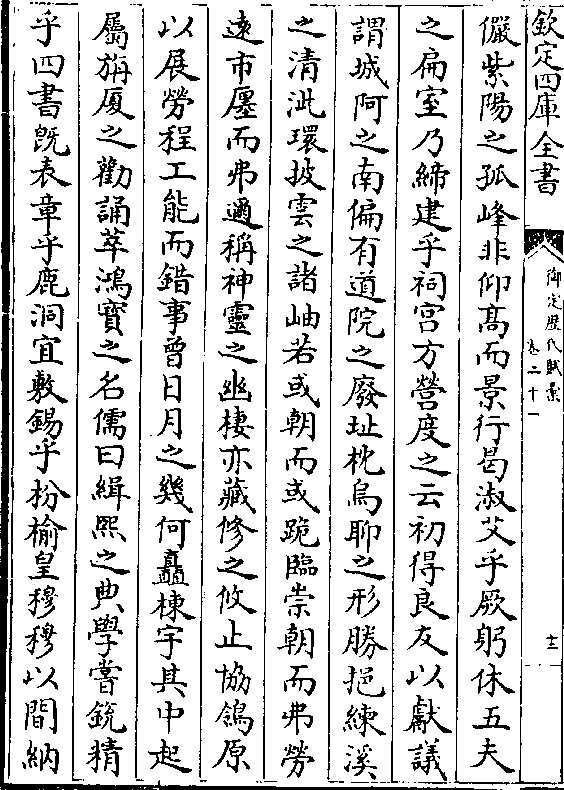 欽定四庫全書
御定歴代賦彙
卷二十一
十三
儼紫陽之孤峰非仰髙而景行曷淑艾乎厥躬休五夫
之扁室乃締建乎祠宫方營度之云初得良友以獻議
謂城阿之南偏有道院之廢址枕烏聊之形勝挹練溪
之清泚環披雲之諸岫若或朝而或跪臨崇朝而弗勞
逺市廛而弗邇稱神靈之幽棲亦藏修之攸止協鴒原
以展勞程工能而錯事曾日月之幾何矗棟宇其中起
屬旃厦之勸誦萃鴻寳之名儒曰緝熙之典學嘗鋭精
乎四書既表章乎鹿洞宜敷錫乎枌榆皇穆穆以間納